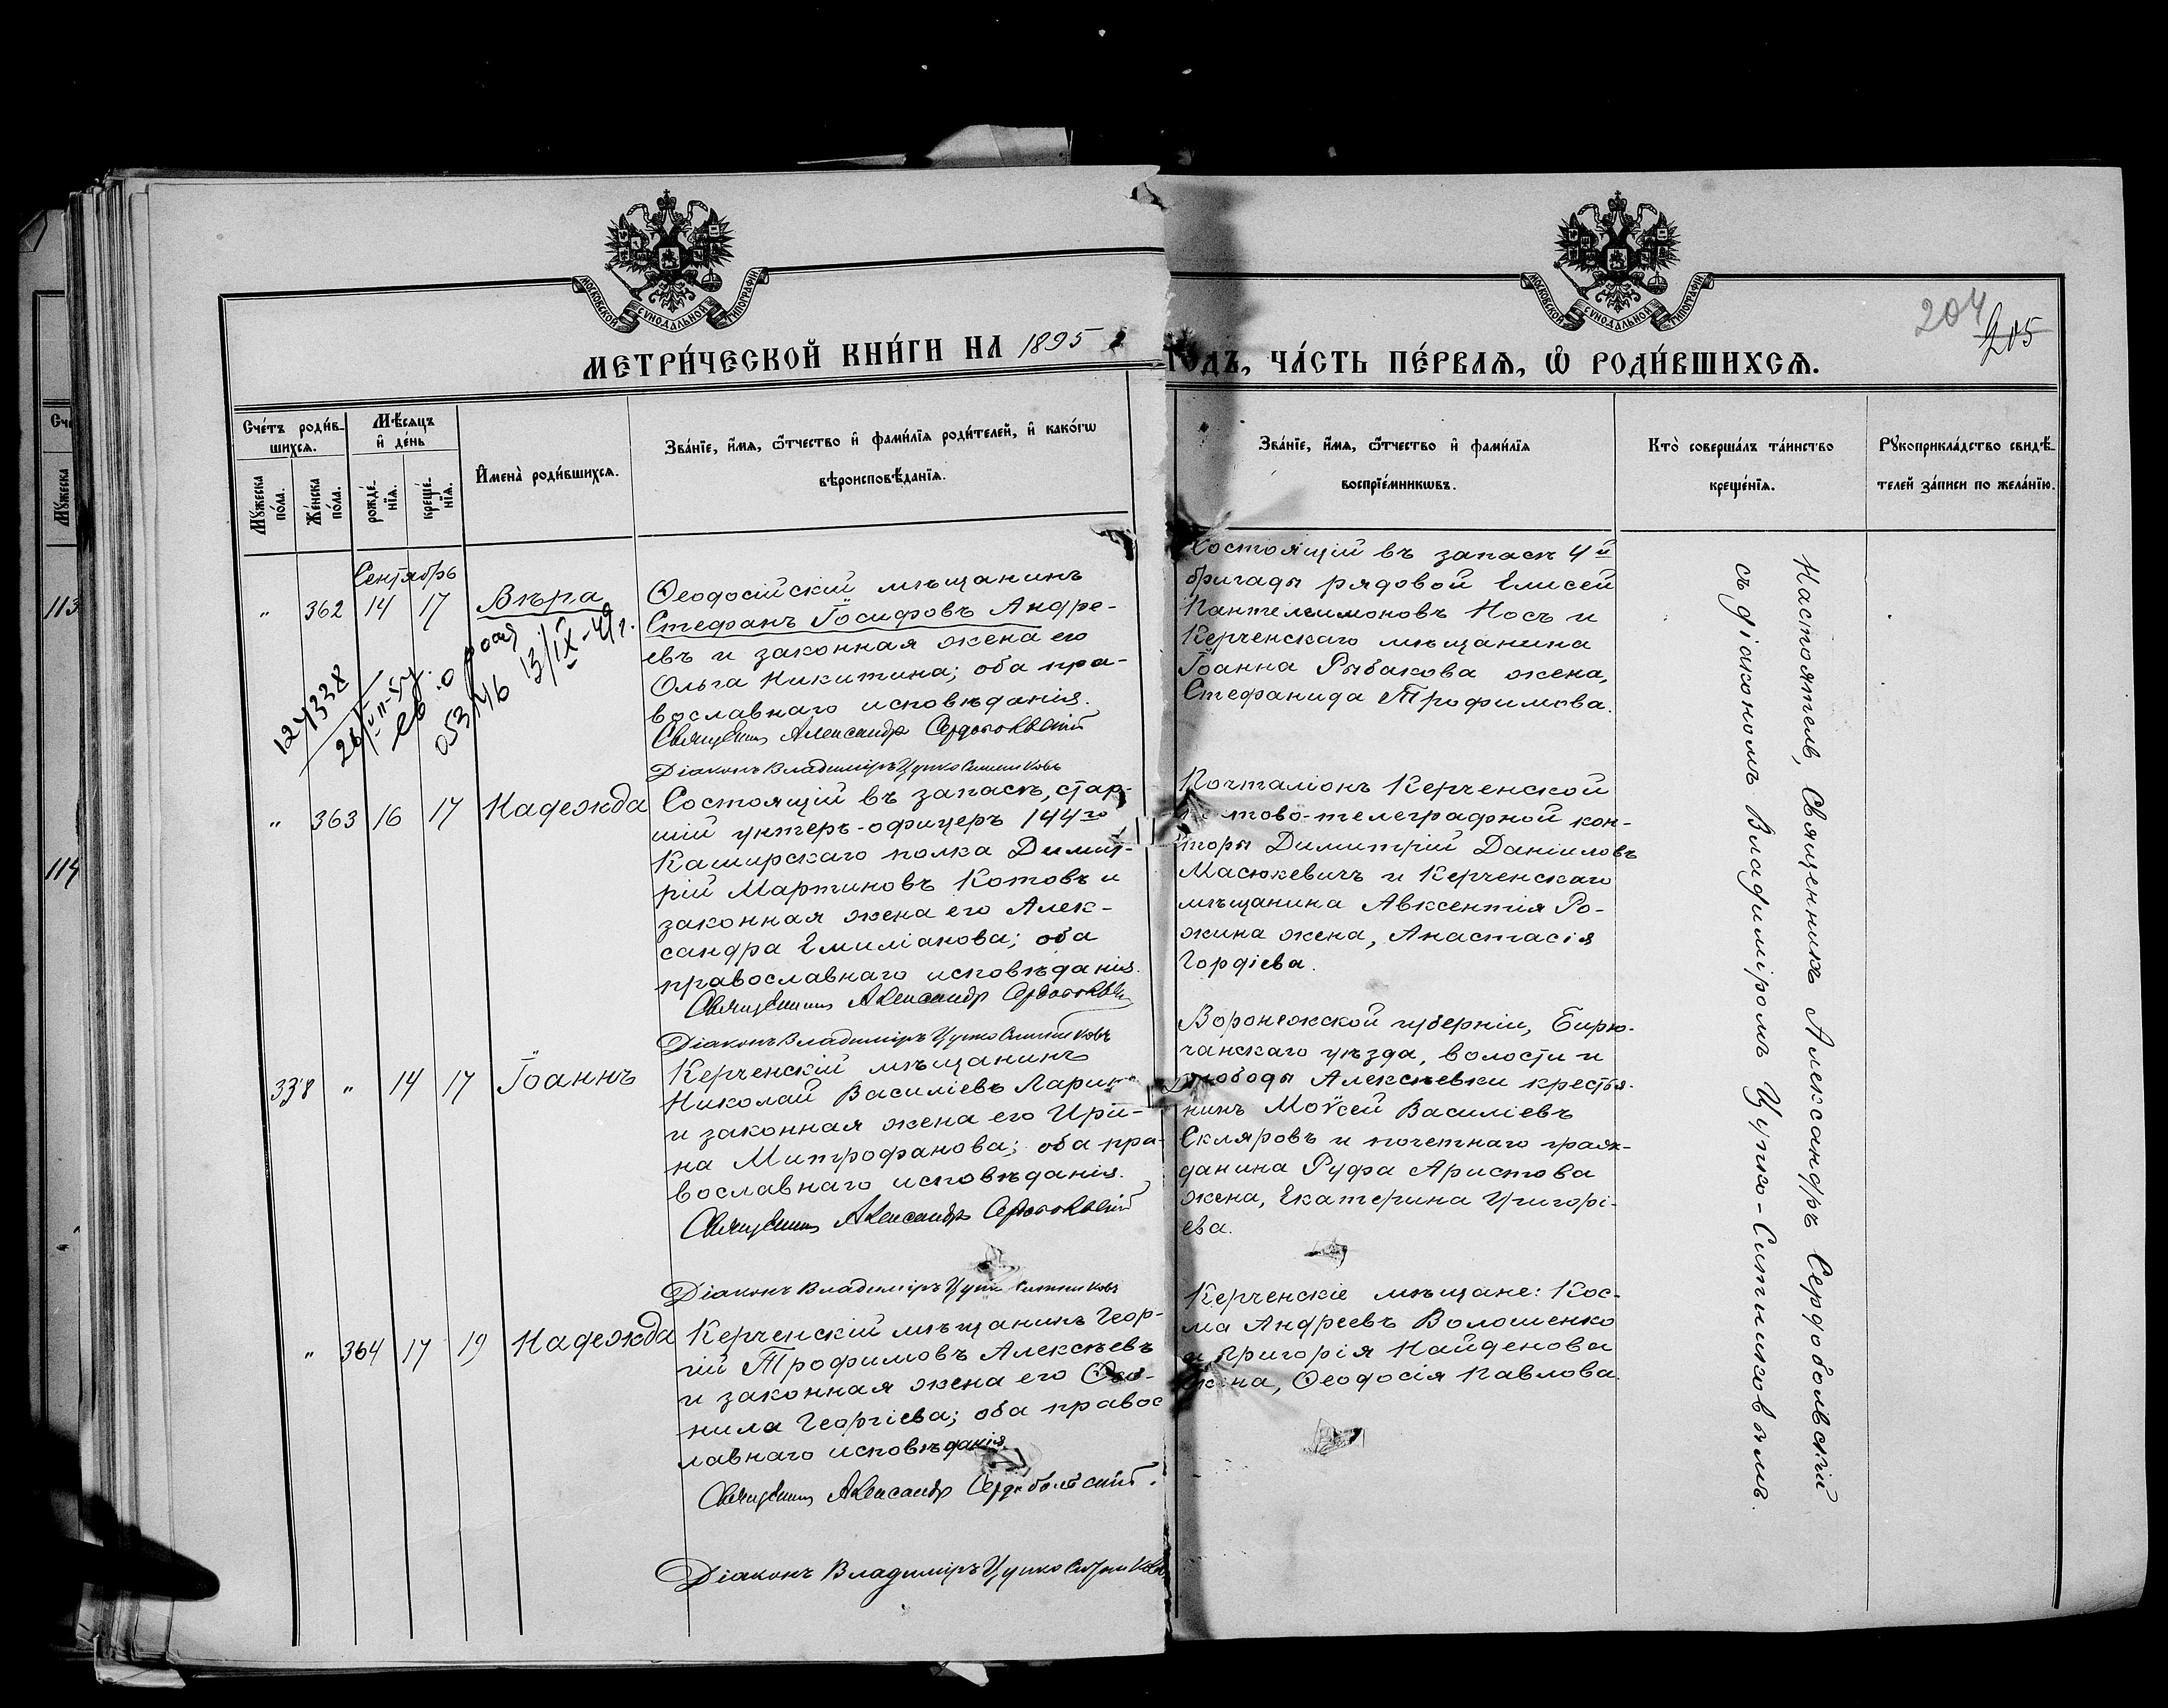 МОСКОВСКОЙ СѴНОДАЛЬНОЙ ТИПОГРАФІИ
МОСКОВСКОЙ СѴНОДАЛЬНОЙ ТИПОГРАФІИ
204
205
МЕТРИ́ЧЕСКОЙ КНИ́ГИ НА 1895
ГОДЪ, ЧА́СТЬ ПЕ́РВАѦ, Ѡ҆ РОДИ́ВШИХСѦ.
Сче́тъ роди́в-
шихсѧ.
Мѣ́сѧцъ
и҆ де́нь
Мꙋ́жеска
по́ла.
Же́нска
по́ла.
рожде́-
нїѧ.
креще́-
нїѧ.
И҆мена̀ роди́вшихсѧ.
Зва́нїе, и҆́мѧ, ѻ҆́тчество и҆ фами́лїѧ роди́телей, и҆ како́гѡ
вѣроисповѣ́данїѧ.
Зва́нїе, и҆́мѧ, ѻ҆́тчество и҆ фами́лїѧ
воспрїе́мникѡвъ.
Кто̀ соверша́лъ та́инство
креще́нїѧ.
Рꙋкоприкла́дство свидѣ́-
телей за́писи по жела́нїю.
Сентябрь
" 362 14 17 Вѣра
Ѳеодосійскій мѣщанинъ
Стефанъ Іосифовъ Андре-
евъ и законная жена его
Ольга Никитина; оба пра-
вославнаго исповѣданія.
Священникъ Александръ Сердобольскій
Діаконъ Владиміръ Цупко Ситниковъ
Состоящій въ запасѣ 4й
бригады рядовой Елисей
Пантелеимоновъ Носъ и
Керченскаго мѣщанина
Іоанна Рыбакова жена,
Стефанида Трофимова.
13/IX-49г.
" 363 16 17 Надежда
Состоящій въ запасѣ, стар-
шій унтеръ-офицеръ 144го
Каширскаго полка Димит-
рій Мартиновъ Котовъ и
законная жена его Алек-
сандра Емиліанова; оба
православнаго исповѣданія.
Священникъ Александръ Сердобольскій
Діаконъ Владиміръ Цупко Ситниковъ
Почталіонъ Керченской
почтово-телеграфной кон-
торы Димитрій Даніиловъ
Масюкевичъ и Керченскаго
мѣщанина Авксентія Ро-
жина жена, Анастасія
Гордіева.
338 " 14 17 Іоаннъ
Керченскій мѣщанинъ
Николай Василіевъ Ларинъ
и законная жена его Ири-
на Митрофанова; оба пра-
вославнаго исповѣданія.
Священникъ Александръ Сердобольскій
Діаконъ Владиміръ Цупко Ситниковъ
Воронежской губерніи, Бирю-
чанскаго уѣзда, волости и
слободы Алексѣевки крестья-
нинъ Моѵсей Василіевъ
Скляровъ и почетнаго граж-
данина Руфа Аристова
жена, Екатерина Григорі-
ева.
" 364 17 19 Надежда
Керченскій мѣщанинъ Геор-
гій Трофимовъ Алексѣевъ
и законная жена его
нила Георгіева; оба правос
лавнаго исповѣданія
Священникъ Александръ Сердобольскій.
Діаконъ Владиміръ Цупко Ситниковъ
Керченскіе мѣщане: Кос-
ма Андреевъ Волошенко
и Григорія Найденова
жена, Ѳеодосія Павлова.
Настоятель, Священникъ Александръ Сердобольскій
съ діакономъ Владиміромъ Цупко-Ситниковымъ.
113
114